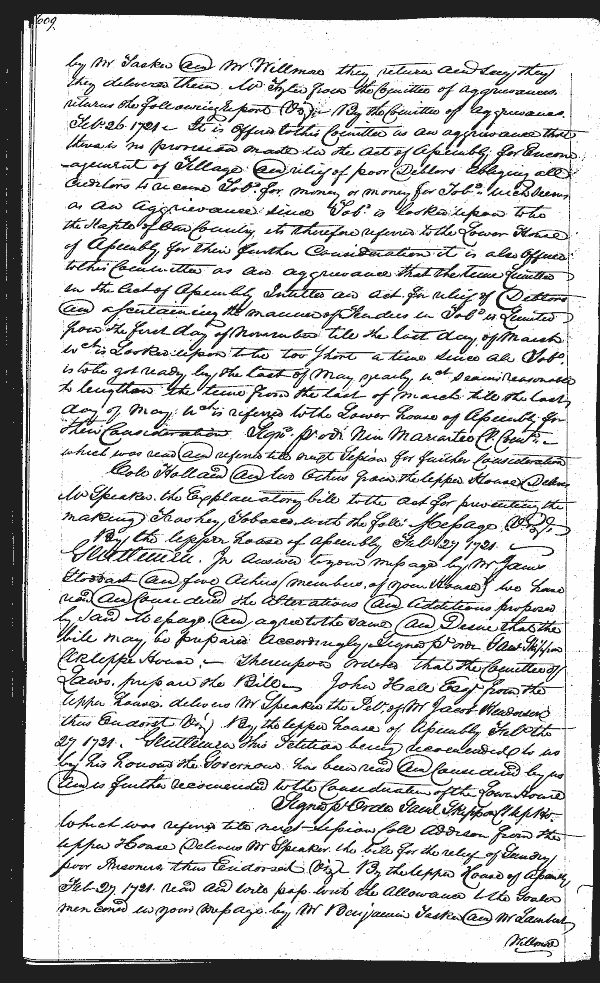 609.
by Mr Tasker and Mr Willmore they return and say they
they delivered them Mr Tyler from the Comittee of aggrievances
returns the following Report (Viz) By the Comittee of Aggrievances
Feb: 26 1721 It is offered to this Comittee as an aggrievance that
there is no provision made in the Act of Assembly for Encour
-agement of Tillage and relief of poor Debtors obliging all
Creditors to receive Tobo for money or money for Tobo wch seems
as an Aggrievance since Tobo is looked upon to be
the Staple of Our Country its therefore referred to the Lower House
of Assembly for their further Consideration it is also offered
to this Committee as an aggrievance that the time limited
in the Act of Assembly Intitled an act for relief of Debtors
and ascertaining the manner of Tenders in Tobo is Limited
from the first day of November till the last day of March
wch is Looked upon to be too short a time since all Tobo
is to be got ready by the last of May yearly wch seems reasonable
to lengthen the time from the last of March till the last
day of May wch is referred to the Lower house of Assembly for
their Consideration Signd p ordr Nin Mariartee Cl Comtee
which was read and referred till next Session for further Consideration
Colo Holland and two others from the upper House Delivers
Mr Speaker the Explanatory bill to the act for preventing the
making Trashey Tobacco with the foll: Message (Viz)
By the upper house of Assembly Feb: 27 1721
Gentlemen In Answer to your message by Mr James
Stoddart and five others members of your House we have
read and Considered the Alterations and Additions proposed
by said Message and agree to the same and Desire that the
bill may be prepared accordingly Signed p order Saml Skippon
Cl upper House Thereupon ordered that the Comittee of
Laws prepare the Bill John Hall Esqr from the
upper house delivers Mr Speaker the Pet: of Mr Jacob Henderson
thus Endorst (Viz) By the upper house of Assembly Feb: the
27 1721. Gentlemen This Petition being recomended to us
by his honour the Governour has been read and Considered by us
and is further recomended to the Consideration of the Lower House
Signed p Order Saml Skippon Cl up Ho:
Which was referred till next Session Colo Addison from the
upper House Delivers Mr Speaker the bill for the relief of Sundry
poor Prisoners thus Endorsed (Viz) By the upper House of Assembly
Feb: 27 1721 read and will pass with the Allowance to the Goaler
mencond in your message by Mr Benjamin Tasker and Mr Lambert
Willmore